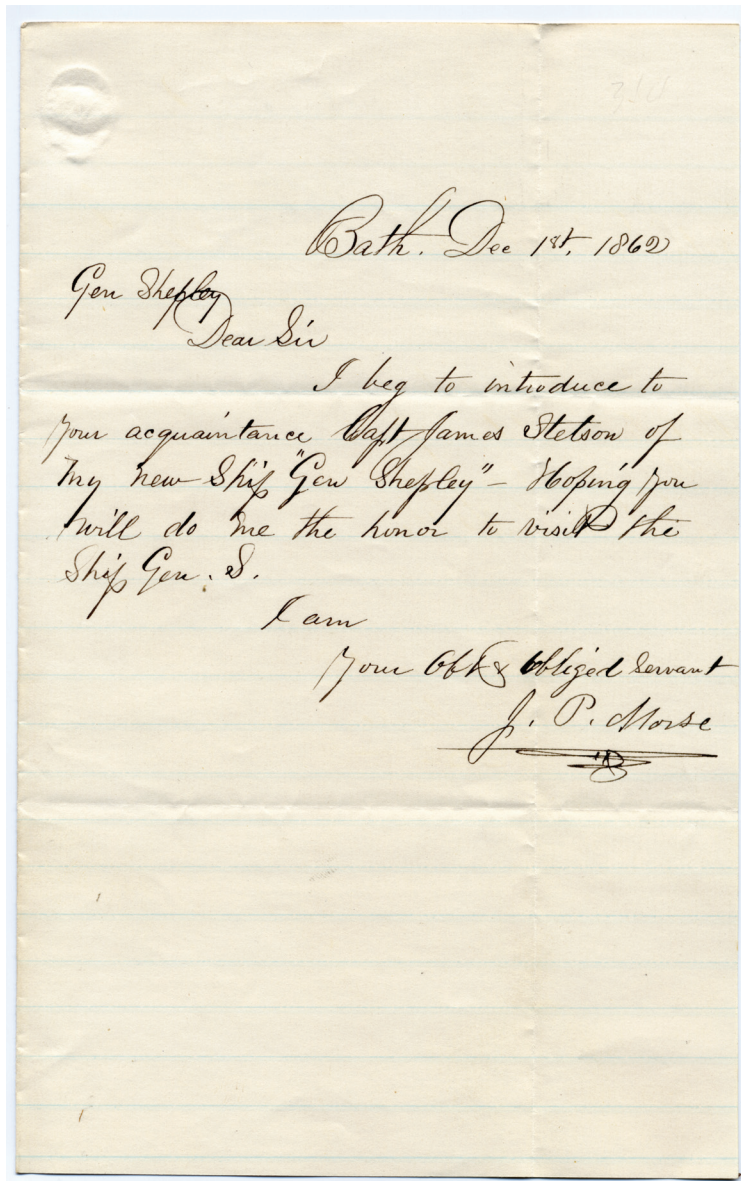 Bath. Dec 1st, 1862
Gen Shepley
Dear Sir
I beg to introduce to
your acquaintance Capt James Stetson of
my new Ship "Gen Shepley" – Hoping you
will do me the honor to visit the
Ship Gen. S.
I am
Your Obt & Obliged Servant
J. P. Morse